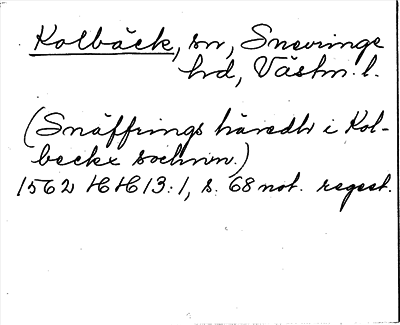 Kolbäck, sn, Snevringe
hd, Västm. l.
(Snäffrings häredh i Kol-
beckx sochnn.)
1562 HH 13:1, s. 68 not. regest.